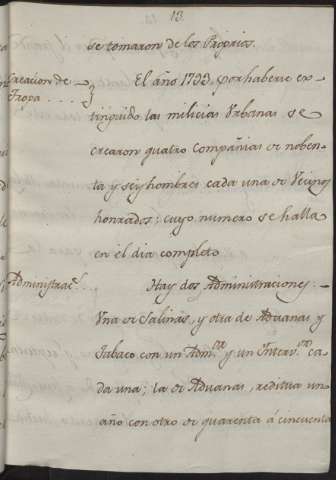 13.
se tomaron de los Proprios.
Creacion de
Tropa
El año 1799. por haberse ex-
tinguido las milicias Vrbanas se
crearon quatro Compañias de noben-
ta y seis hombres cada una de Vecinos
honrados; cuyo numero se halla
en el dia completo
Administrac.s
Hay dos Administraciones.
Vna de Salinas, y otra de Aduanas y
Tabaco con un Adm.or y un Interv.or ca-
da una; la de Aduanas, reditua un
año con otro de quarenta á cincuenta